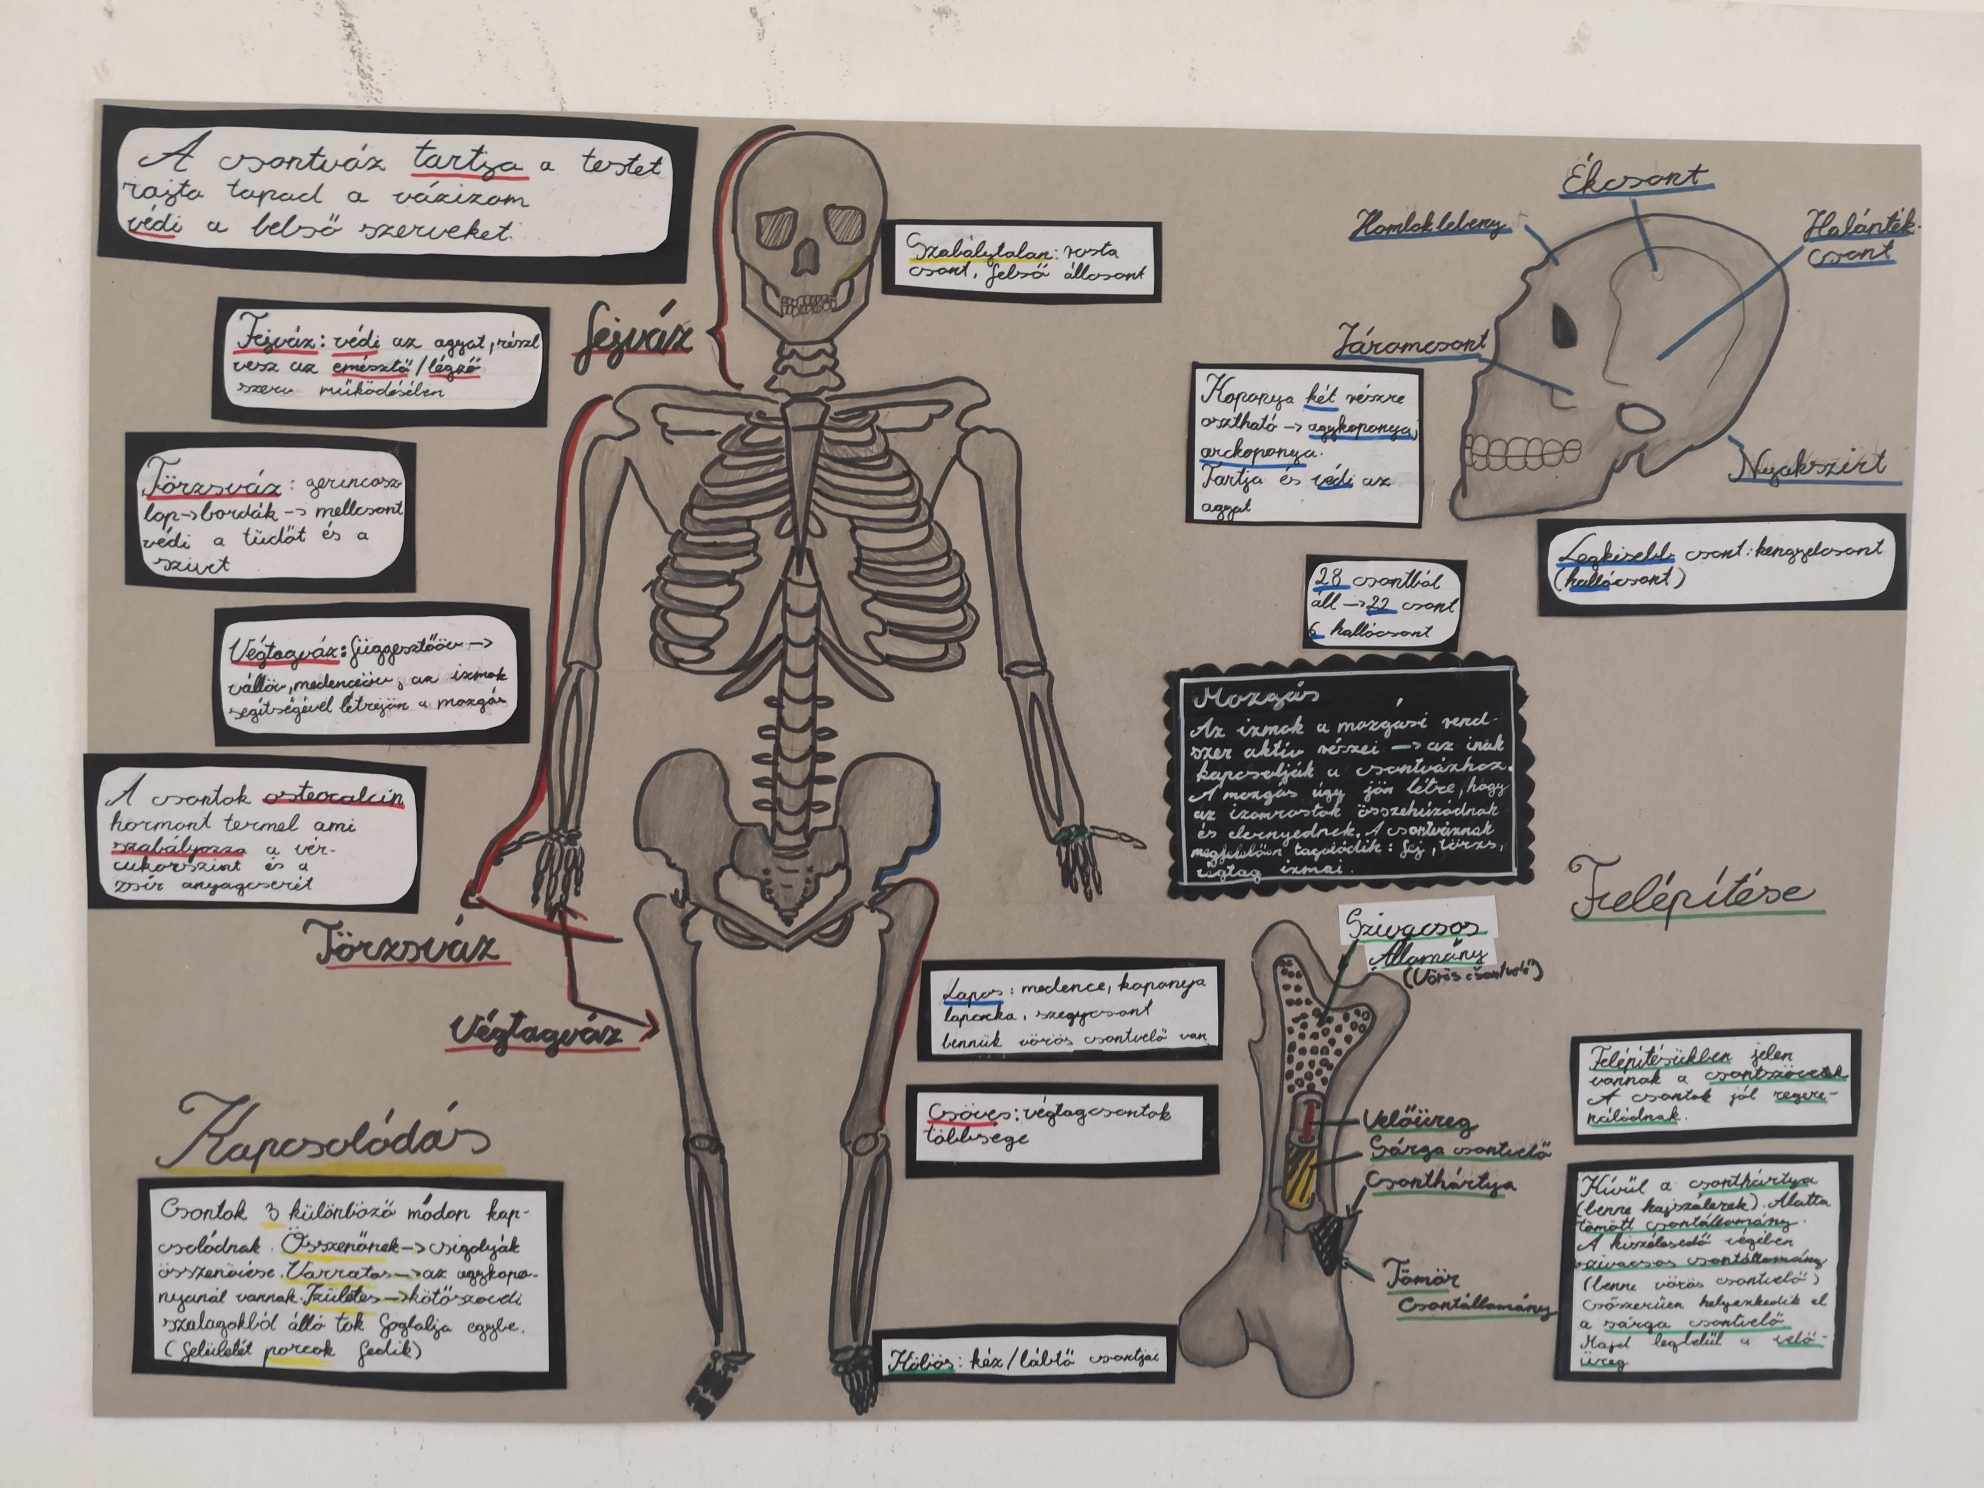 A csontváz tartja a testet
rajta tapad a vázizom
védi a belső szerveket.
Fejváz: védi az agyat, részt
vesz az emésztő/légző
szerv működésében
Törzsváz: gerincosz
lop -> bordák -> mellcsont
védi a tüdőt és a
szívet
Végtagváz: függesztőöv ->
vállöv, medenceöv, az izmok
segítségével létrejön a mozgás
A csontok osteocalcin
hormont termel ami
szabályozza a vér-
cukorszint és a
zsír anyagcserét
fejváz
Törzsváz
Végtagváz
Kapcsolódás
Csontok 3 különböző módon kap-
csolódnak. Összenőnek -> csigolyák
összenövése. Varratos -> az agykopo-
nyánál vannak. Izületes -> kötőszöveti
szalagokból álló tok foglalja egybe.
(felületét porcok fedik)
Szabálytalan: rosta
csont, felső állcsont
Lapos: medence, koponya
lapocka, szegycsont
bennük vörös csontvelő van
Csöves: végtagcsontok
többsége
Köbös: kéz/lábtő csontjai
Ékcsont
Homloklebeny
Halánték-
csont
Járomcsont
Nyakszirt
Koponya két részre
osztható -> agykoponya,
arckoponya.
Tartja és védi az
agyat
Legkisebb csont: kengyelcsont
(hallócsont)
28 csontból
áll -> 22 csont
6 hallócsont
Mozgás
Az izmok a mozgási rend-
szer aktív részei -> az inak
kapcsolják a csontvázhoz.
A mozgás úgy jön létre, hogy
az izomrostok összehúzódnak
és elernyednek. A csontváznak
megfelelően tagolódik: fej, törzs,
végtag izmai.
Felépítése
Szivacsos
Állomány
(Vörös csontvelő)
Velőüreg
Sárga csontvelő
Csonthártya
Tömör
Csontállomány
Felépítésükben jelen
vannak a csontszövetek
A csontok jól regene-
rálódnak.
Kívül a csonthártya
(benne hajszálerek). Alatta
tömött csontállomány.
A kiszélesedő végében
szivacsos csontállomány
(benne vörös csontvelő)
Csőszerűen helyezkedik el
a sárga csontvelő
Majd legbelül a velő-
üreg